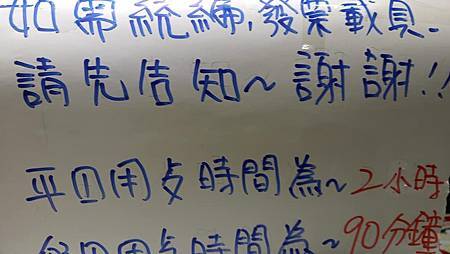 如需統編,發票載具.
請先告知~謝謝!!
平日用歺時間為~2小時
日用歺時間為~90分鐘